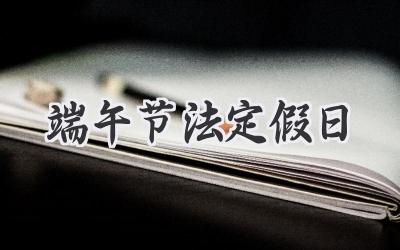 端午节法定假日